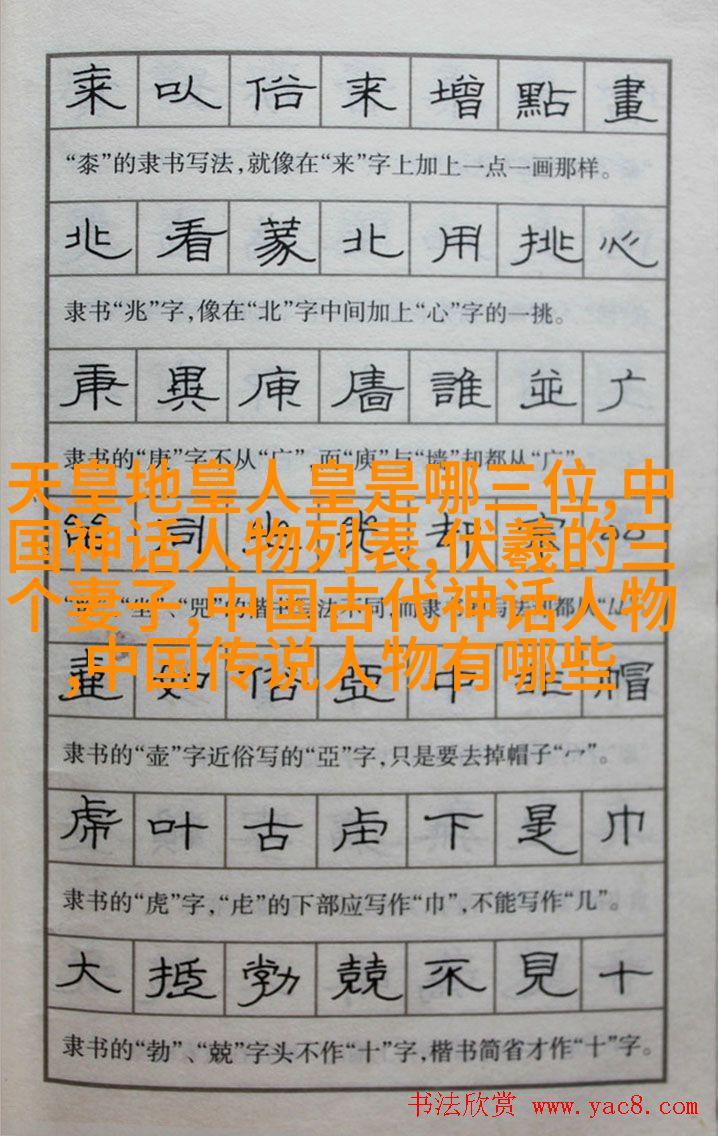 桼以俗来增點畫
“桼”的隶书写法,就像在“来”字上加上一点一画那样。
兆看篆北用挑心
隶书“兆”字,像在“北”字中间加上“心”字的一挑。
庚異庾廧誰並广
隶书的“庚”字不从“广”,而“庾”与“墙”却都从“广”。
天皇地皇人皇是哪三位,中
国神话人物列表,伏羲的三
个妻子,中国古代神话人物
,中国传说人物有哪些
同 却
“坐”、 的楷书写法不同,而隶书的写法却都从
壺如俗亞中非帽
隶书的“壶”字近俗写的“亞”字,只是要去掉帽子“冖”。
虎叶古虍下是巾
隶书的“虎”字,“虍”的下部应写作“巾”,不能写作“几”。
大抵勃兢不見十
隶书的“勃”、“兢”字头不作“十”字,楷书简省才作“十”字。
书法欣赏 www.yac8.com